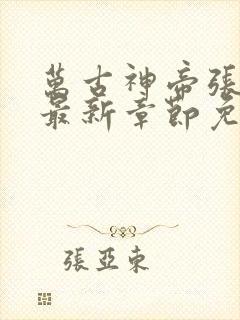 萬古神帝張
最新章節免
張亞東